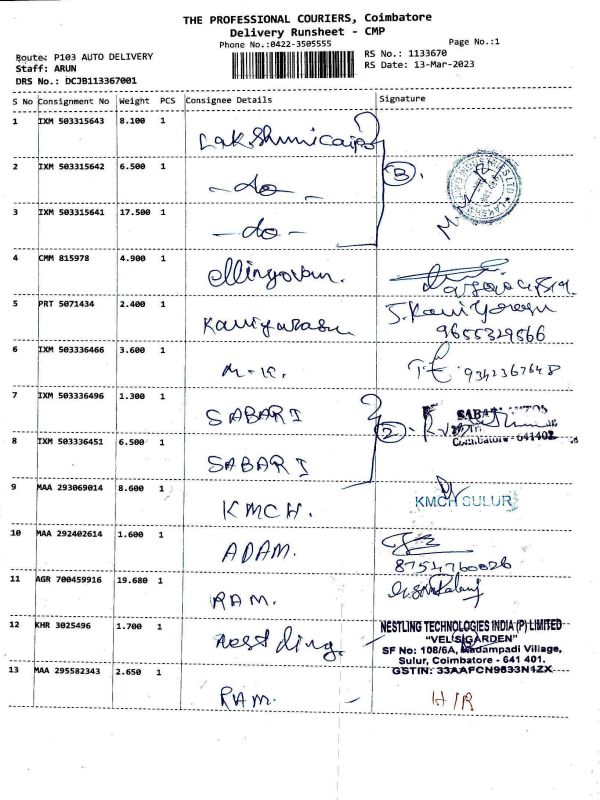 THE PROFESSIONAL COURIERS, Coimbatore
Delivery Runsheet - CMP
Phone No.:0422-3505555
Page No.:1
Route: P103 AUTO DELIVERY
RS No.: 1133670
Staff: ARUN
RS Date: 13-Mar-2023
DRS No.: DCJB113367001
S No Consignment No Weight PCS Consignee Details Signature
1 IXM 503315643 8.100 1
2 IXM 503315642 6.500 1 -do-
3 IXM 503315641 17.500 1 -do-
3.
4 CMM 815978 4.900 1
5 PRT 5071434 2.400 1 Kaniyarasu
9655329566
6 IXM 503336466 3.600 1 M-K. 9342367648
7 IXM 503336496 1.300 1 SABARI
2
Coimbatore - 641402
8 IXM 503336451 6.500 1 SABARI
9 MAA 293069014 8.600 1 KMCH. KMCH SULUR
10 MAA 292402614 1.600 1 ADAM.
8754760026
11 AGR 700459916 19.680 1 RAM.
12 KHR 3025496 1.700 1
NESTLING TECHNOLOGIES INDIA (P) LIMITED
"VELS GARDEN"
SF No: 108/6A, Kadampadi Village,
Sulur, Coimbatore - 641 401.
GSTIN: 33AAFCN9633N1ZX
13 MAA 295582343 2.650 1 RAM. HIR